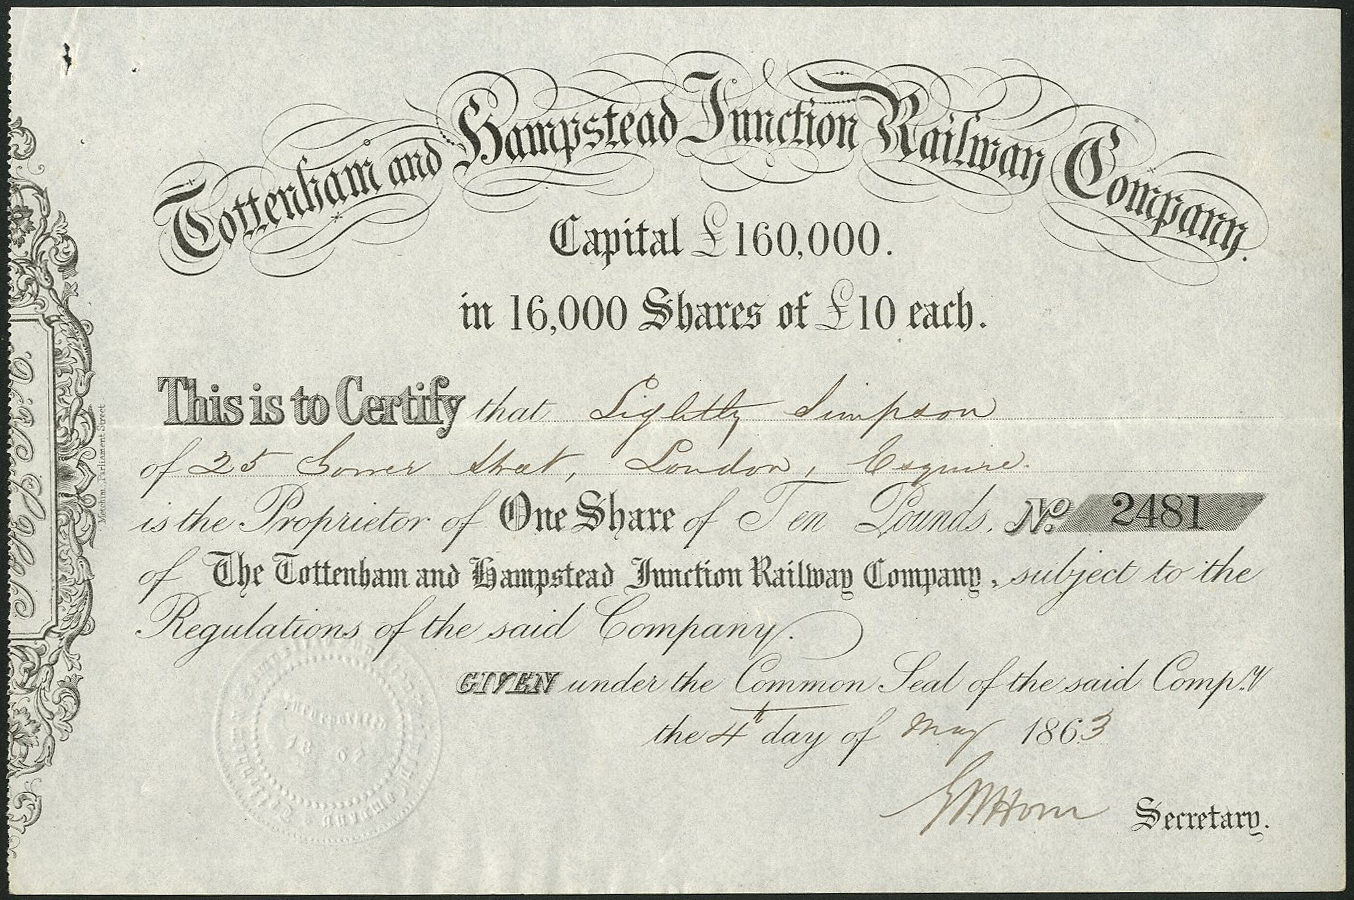 Tottenham and Hampstead Junction Railway Company.
Capital £160,000.
in 16,000 Shares of £10 each.
This is to Certify that Lightly Simpson
of 25 Gower Street, London, Esquire.
is the Proprietor of One Share of Ten Pounds, No. 2481
of The Tottenham and Hampstead Junction Railway Company, subject to the
Regulations of the said Company.
GIVEN under the Common Seal of the said Compy.
the 4th day of May 1863
Secretary.
Parliament Street
INCORPORATED